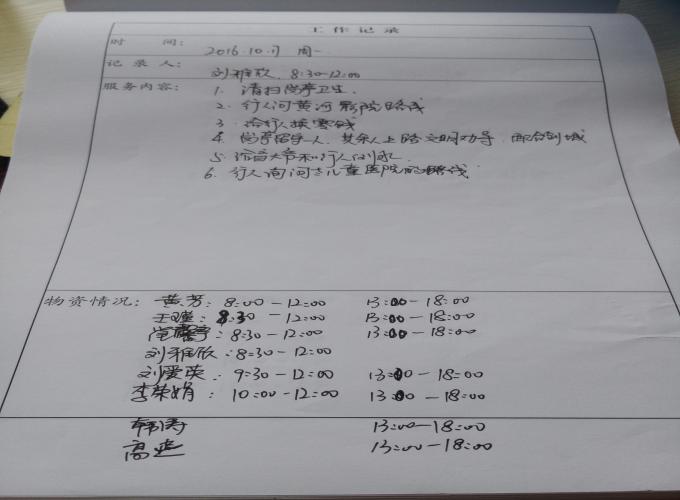 工作记录
时 间： 2016.10.17 周一
记录人： 刘雅欣 8:30-12:00
服务内容： 1. 清扫岗亭卫生.
2. 行人问黄河影院路线
3. 给行人换零钱
4. 岗亭留守一人, 其余人上路文明劝导, 配合创城
5. 行人
6. 行人询问去儿童医院的路线
物资情况： 黄芳: 8:00-12:00 13:00-18:00
王瑾: 8:30-12:00 13:00-18:00
8:30-12:00 13:00-18:00
刘雅欣: 8:30-12:00
刘爱英: 9:30-12:00 13:00-18:00
李荣娟: 10:00-12:00 13:00-18:00
韩涛 13:00-18:00
高 13:00-18:00